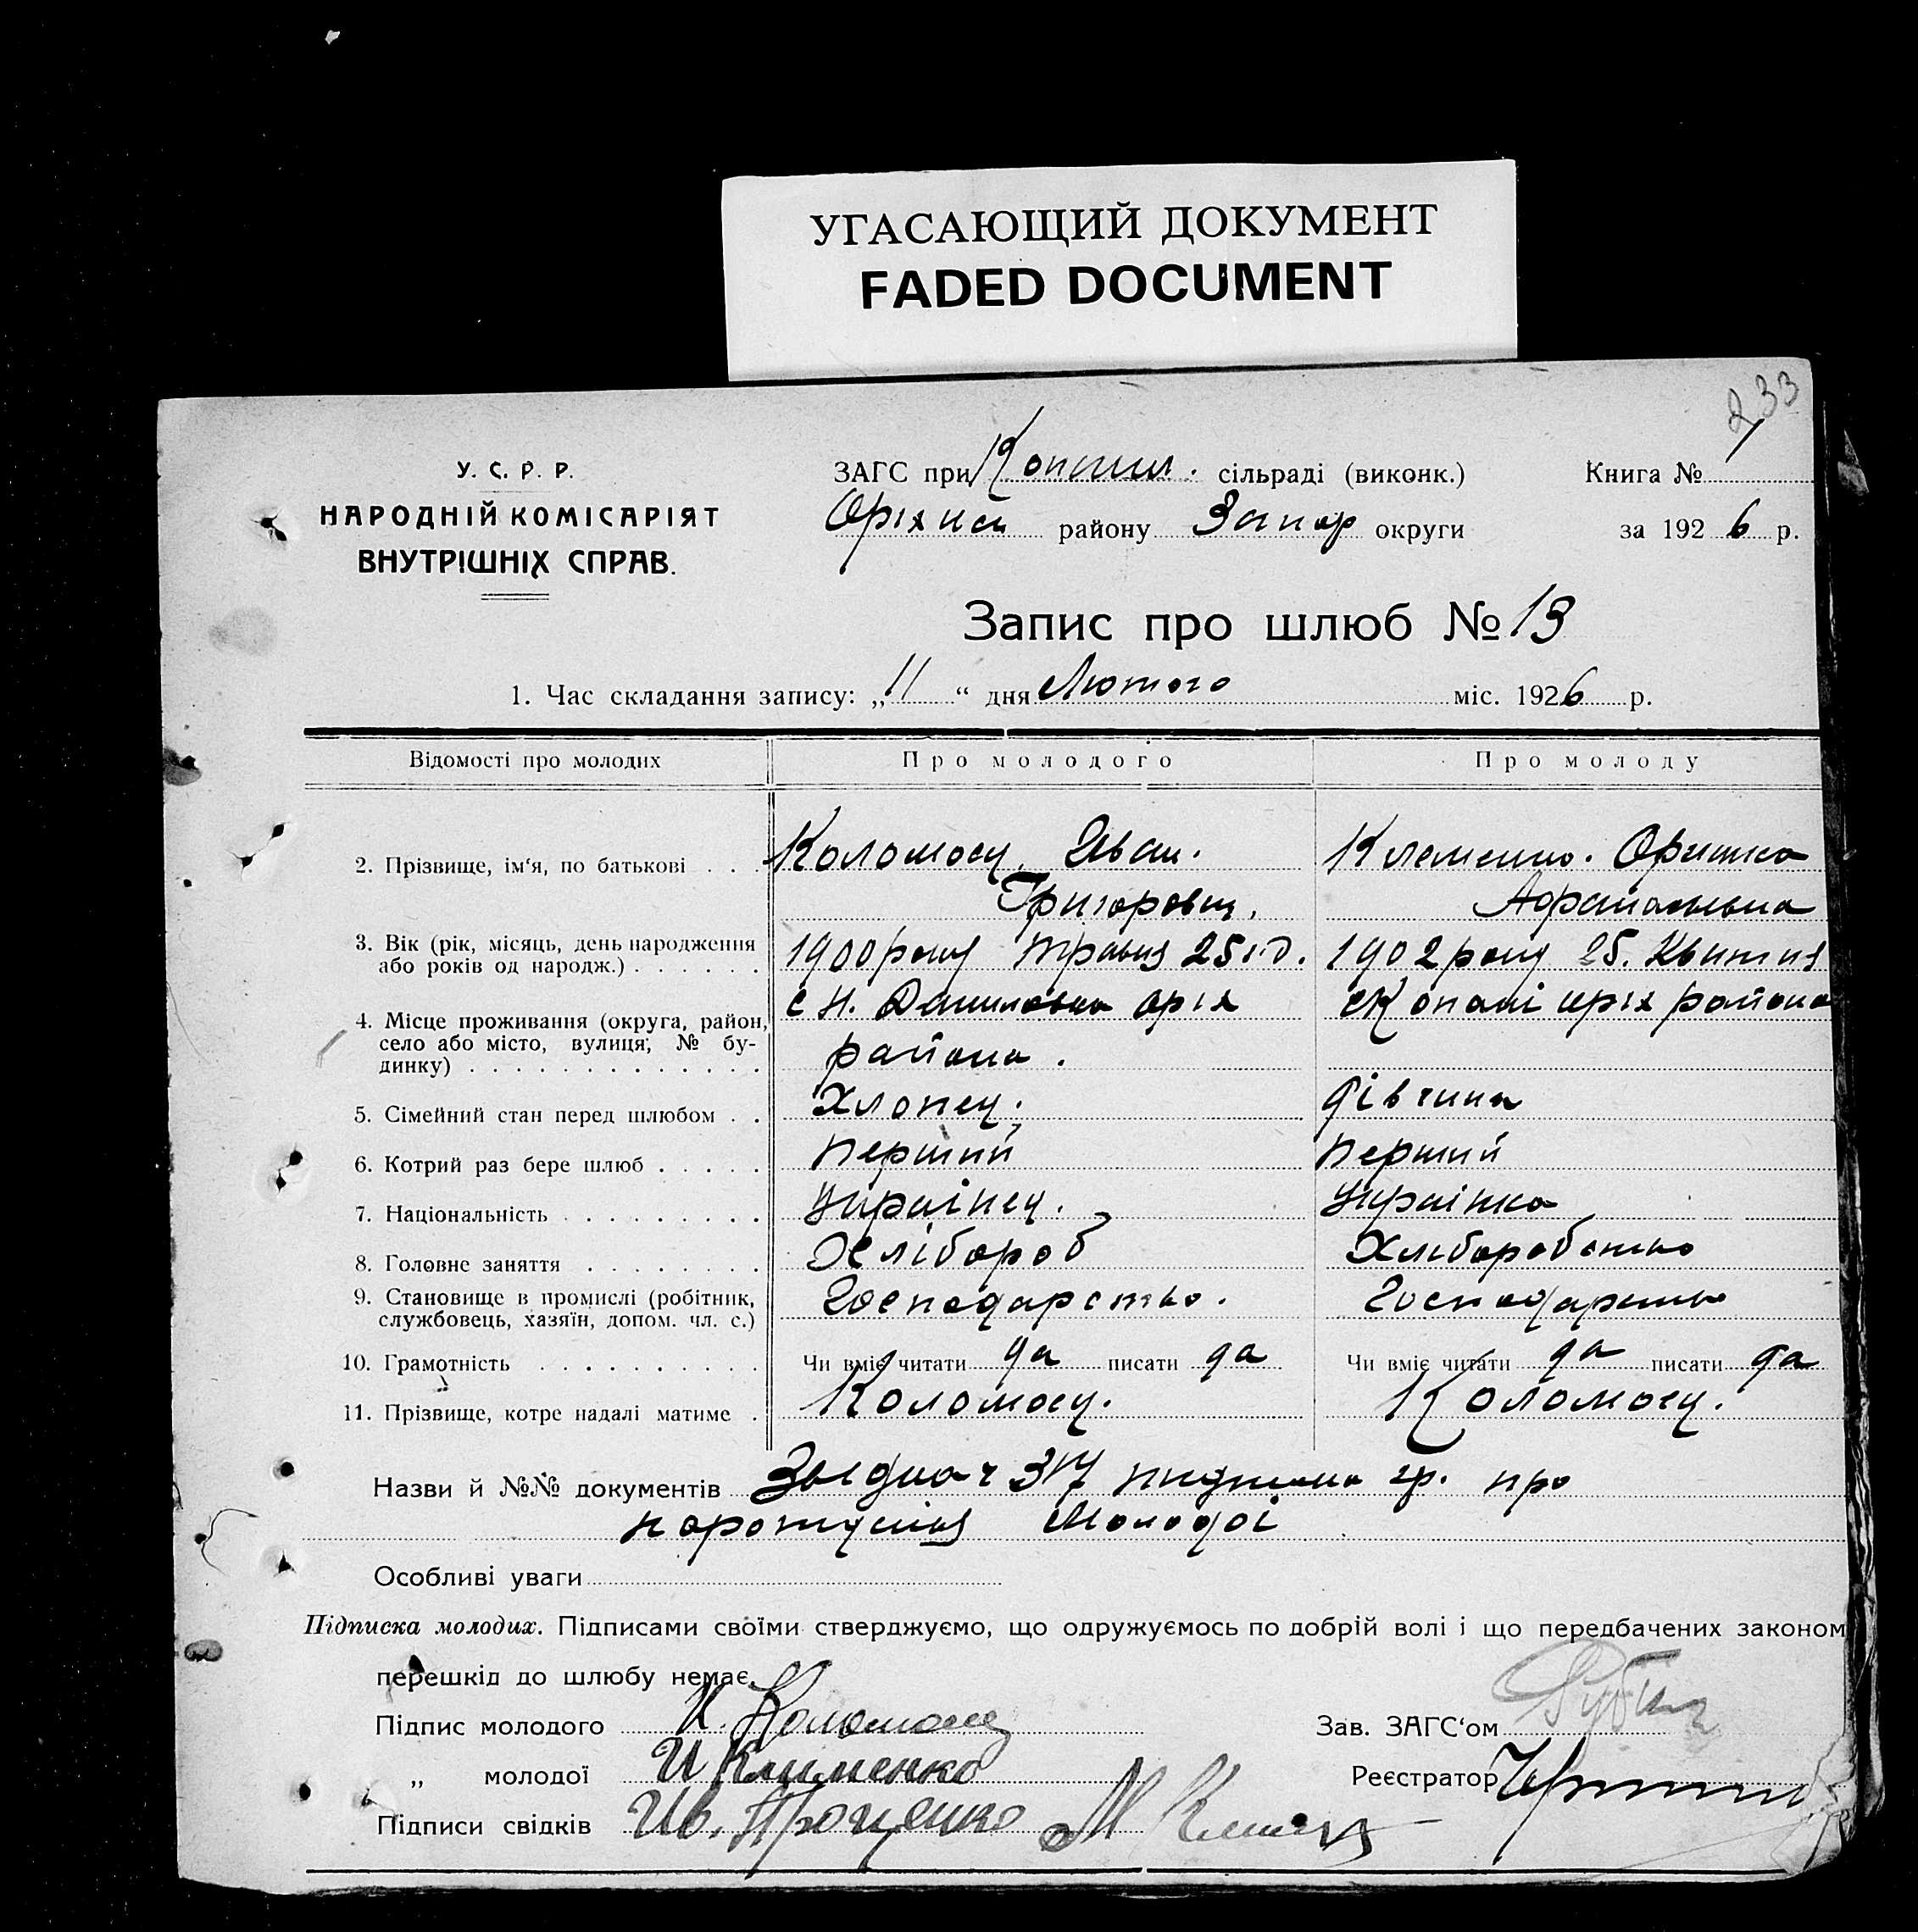 УГАСАЮЩИЙ ДОКУМЕНТ
FADED DOCUMENT
233
У. С. Р. Р.
НАРОДНІЙ КОМІСАРІЯТ
ВНУТРІШНІХ СПРАВ.
ЗАГС при сільраді (виконк.)
Книга №
Оріхис району Запор округи
за 1926 р.
Запис про шлюб № 13
1. Час складання запису: „11“ дня Лютого міс. 1926 р.
Відомості про молодих
Про молодого
Про молоду
2. Прізвище, ім‘я, по батькові
Коломоец. Иван.
Григорович.
Клеменко. Оришка
3. Вік (рік, місяць, день народження
або років од народж.)
1900 року травня 25 і.д.
1902 року 25. Квитня
4. Місце проживання (округа, район,
село або місто, вулиця, № бу-
динку)
с Н. Даниловка оріх
района.
с Копані оріх района
5. Сімейний стан перед шлюбом
Хлопец.
дівчина
6. Котрий раз бере шлюб
Перший
Перший
7. Національність
Украінец.
Украінка
8. Головне заняття
Хлібороб
Хліборобство
9. Становище в промислі (робітник,
службовець, хазяїн, допом. чл. с.)
Господарство.
Господарство
10. Грамотність
Чи вміє читати да писати да
Чи вміє читати да писати да
11. Прізвище, котре надалі матиме
Коломоец.
Коломоец.
Назви й №№ документів
317 гр. про
Молодоі
Особливі уваги
Підписка молодих. Підписами своїми стверджуємо, що одружуємось по добрій волі і що передбачених законом
перешкід до шлюбу немає.
Підпис молодого И. Коломоец
Зав. ЗАГС‘ом
„ молодої И Клименко
Реєстратор
Підписи свідків Ив. Проценко